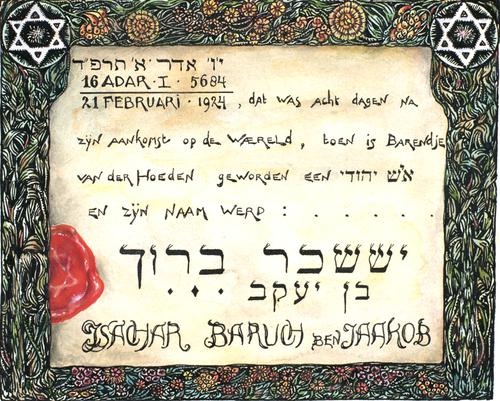 י"ו' אדר 'א' תרפ"ד
16 ADAR · I · 5684
21 FEBRUARI · 1924, dat was acht dagen na
zijn aankomst op de Wæreld, toen is Barendje
van der Hoeden geworden een איש יהודי
en zijn naam werd : . . . .
יששכר ברוך
בן יעקב
ISACHAR BARUCH BEN JAAKOB